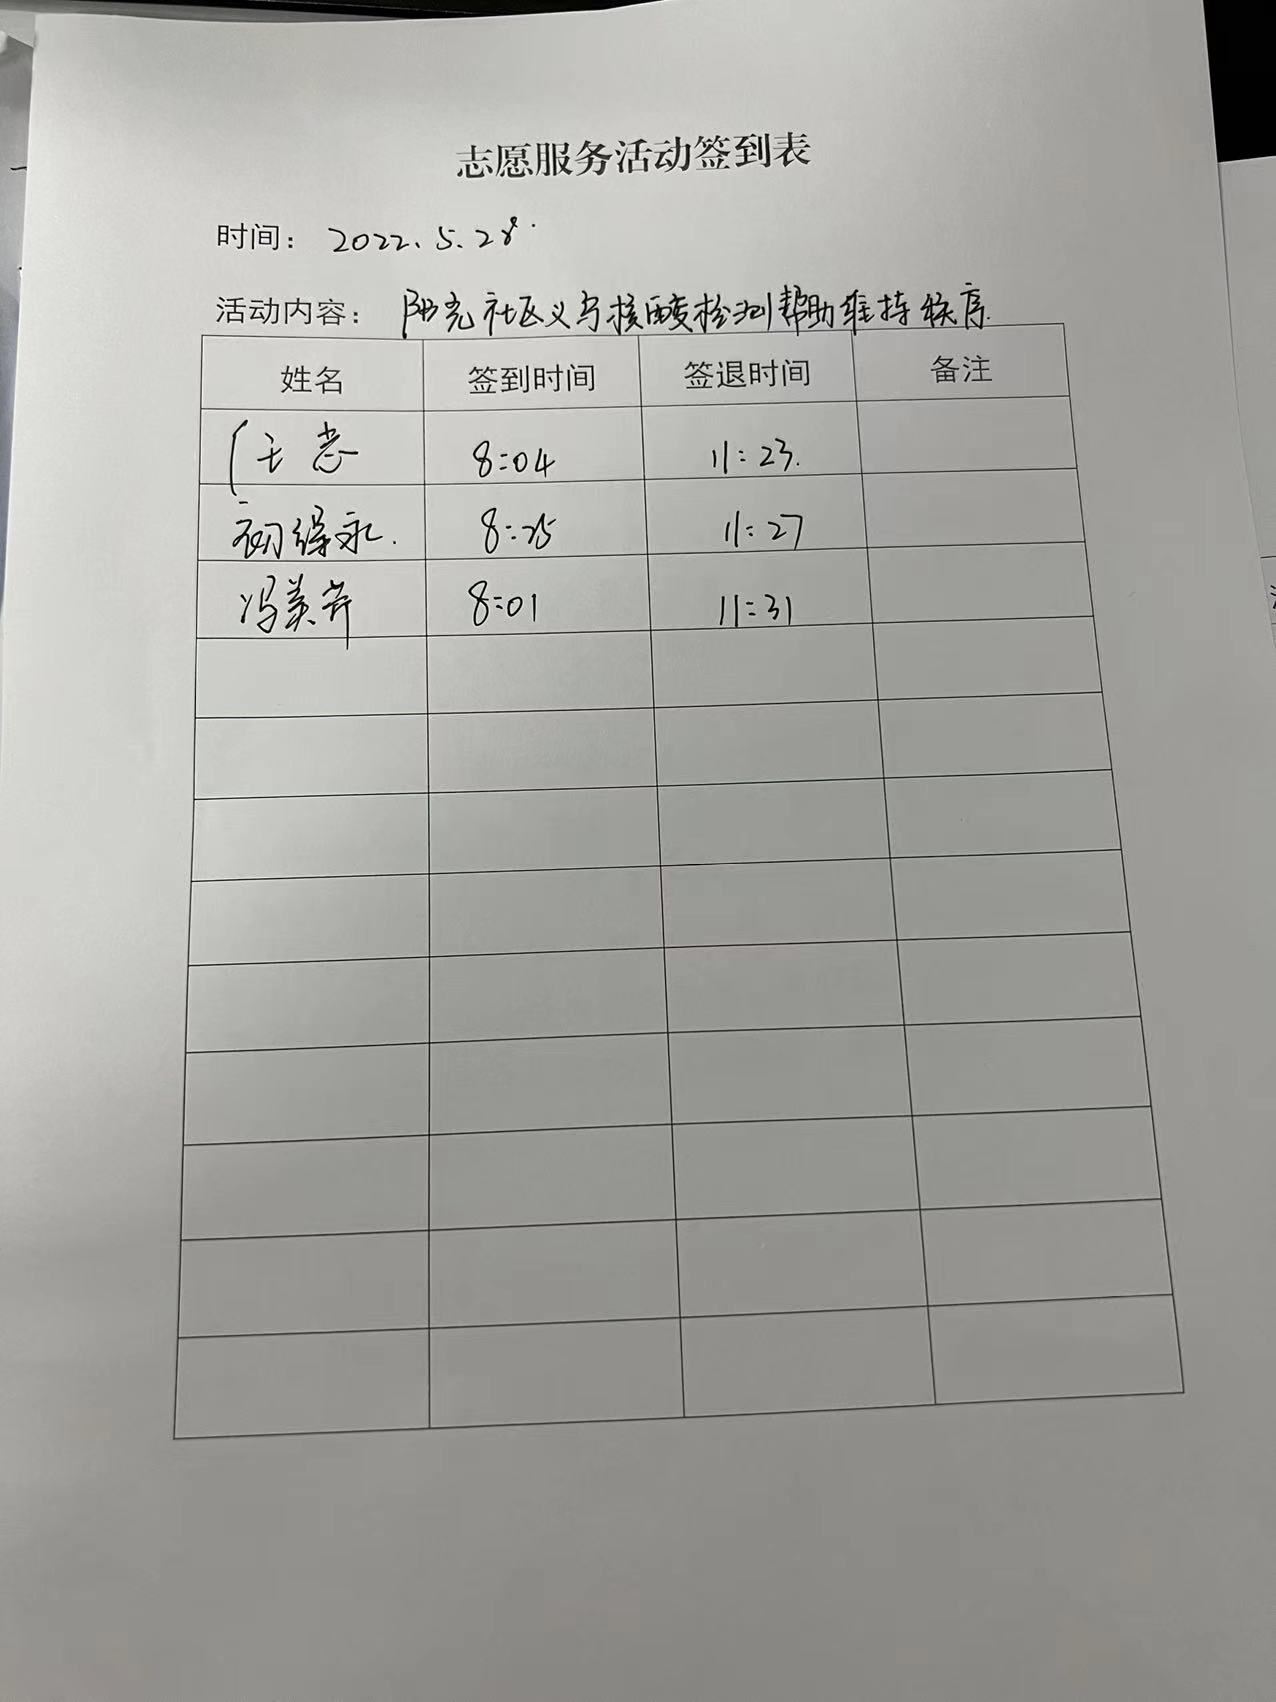 志愿服务活动签到表
时间： 2022.5.28.
活动内容： 阳光社区义务核酸检测帮助维持秩序.
姓名 签到时间 签退时间 备注
8:04 11:23.
初绿永. 8:25 11:27
冯美芹 8:01 11:31